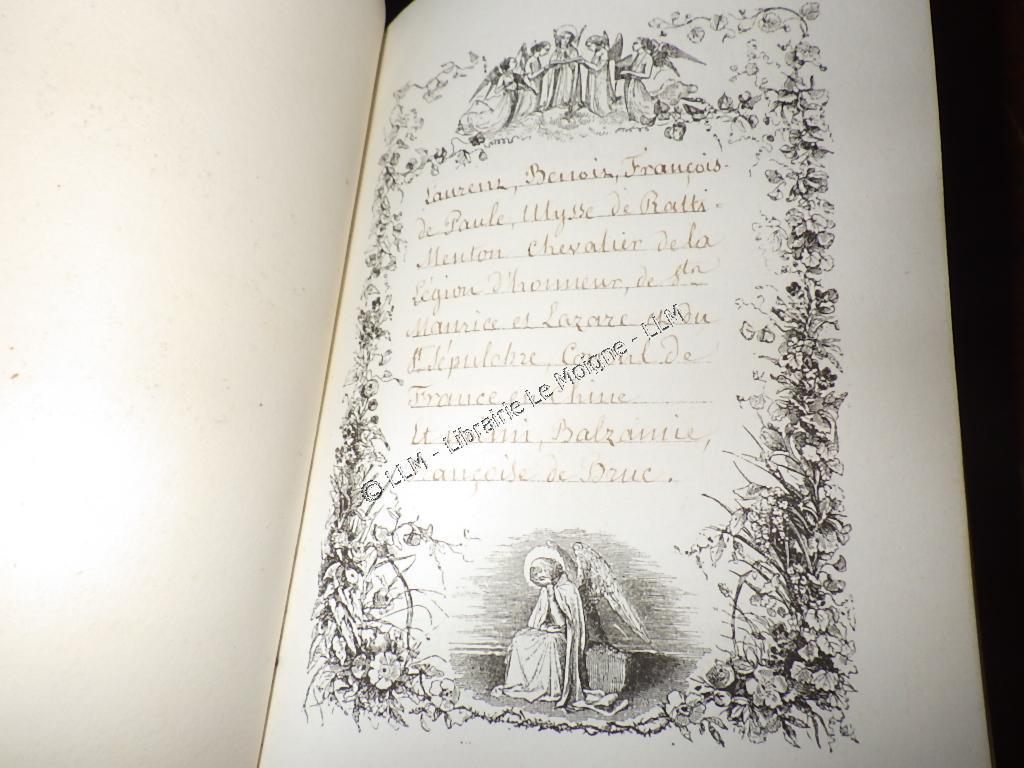 Laurent, Benoit, François-
de Paule, Ulysse de Ratti-
Menton Chevalier de la
Légion d'honneur, de Stn
Maurice et Lazare et du
St Sépulchre, Consul de
France en Chine
Et Balzamie,
Françoise de Bruc.
© LLM - Librairie Le Moigne - LLM